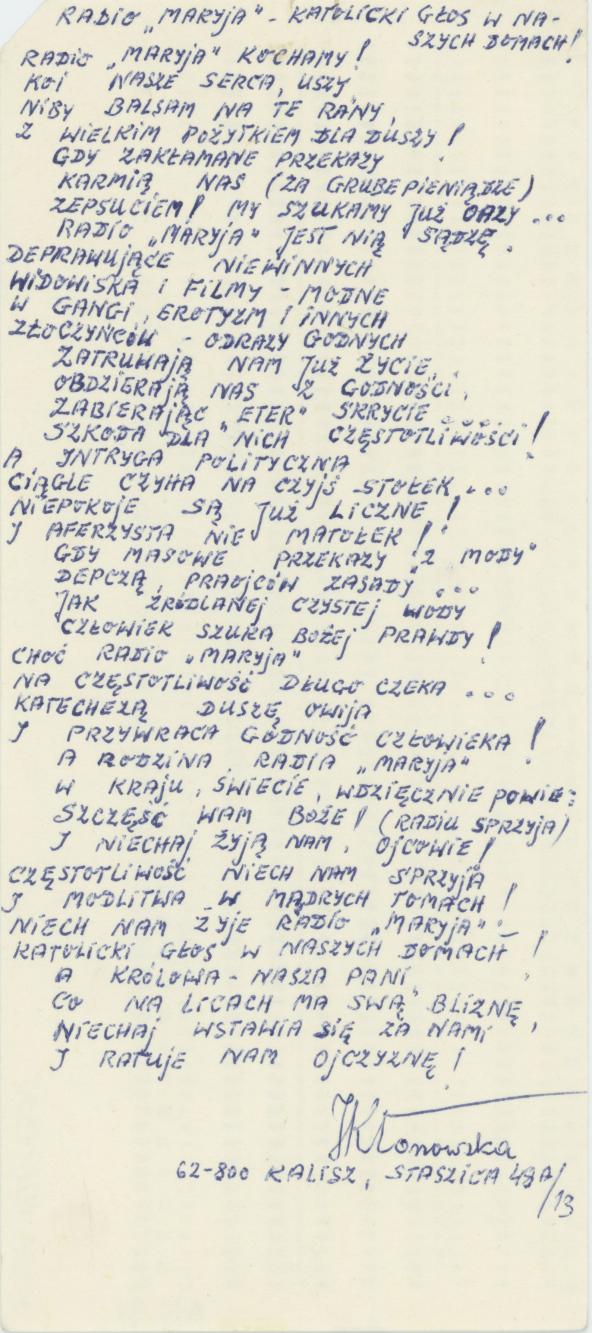 RADIO „MARYJA" - KATOLICKI GŁOS W NA-
SZYCH DOMACH!
RADIO „MARYJA" KOCHAMY!
KOI NASZE SERCA, USZY
NIBY BALSAM NA TE RANY,
Z WIELKIM POŻYTKIEM DLA DUSZY!
GDY ZAKŁAMANE PRZEKAZY
KARMIĄ NAS (ZA GRUBE PIENIĄDZE)
ZEPSUCIEM! MY SZUKAMY JUŻ OAZY...
RADIO „MARYJA" JEST NIĄ SĄDZĘ.
DEPRAWUJĄCE NIEWINNYCH
WIDOWISKA I FILMY - MODNE
W GANGI, EROTYZM I INNYCH
ZŁOCZYŃCÓW - ODRAZY GODNYCH
ZATRUWAJĄ NAM JUŻ ŻYCIE,
OBDZIERAJĄ NAS Z GODNOŚCI,
ZABIERAJĄC „ETER" SKRYCIE......
SZKODA DLA NICH CZĘSTOTLIWOŚCI!
A INTRYGA POLITYCZNA
CIĄGLE CZYHA NA CZYJŚ STOŁEK...
NIEPOKOJE SĄ JUŻ LICZNE!
I AFERZYSTA NIE MATOŁEK!
GDY MASOWE PRZEKAZY „Z MODY"
DEPCZĄ PRAOJCÓW ZASADY...
JAK ŹRÓDLANEJ CZYSTEJ WODY
CZŁOWIEK SZUKA BOŻEJ PRAWDY!
CHOĆ RADIO „MARYJA"
NA CZĘSTOTLIWOŚĆ DŁUGO CZEKA...
KATECHEZĄ DUSZĘ OWIJA
I PRZYWRACA GODNOŚĆ CZŁOWIEKA!
A RODZINA RADIA „MARYJA"
W KRAJU, ŚWIECIE, WDZIĘCZNIE POWIE:
SZCZĘŚĆ WAM BOŻE! (RADIU SPRZYJA)
I NIECHAJ ŻYJĄ NAM, OJCOWIE!
CZĘSTOTLIWOŚĆ NIECH NAM SPRZYJA
I MODLITWA W MĄDRYCH TOMACH!
NIECH NAM ŻYJE RADIO „MARYJA" -
KATOLICKI GŁOS W NASZYCH DOMACH!
A KRÓLOWA - NASZA PANI,
CO NA LICACH MA SWĄ BLIZNĘ,
NIECHAJ WSTAWIA SIĘ ZA NAMI
I RATUJE NAM OJCZYZNĘ!
JKłonowska
62-800 KALISZ, STASZICA 48A/13